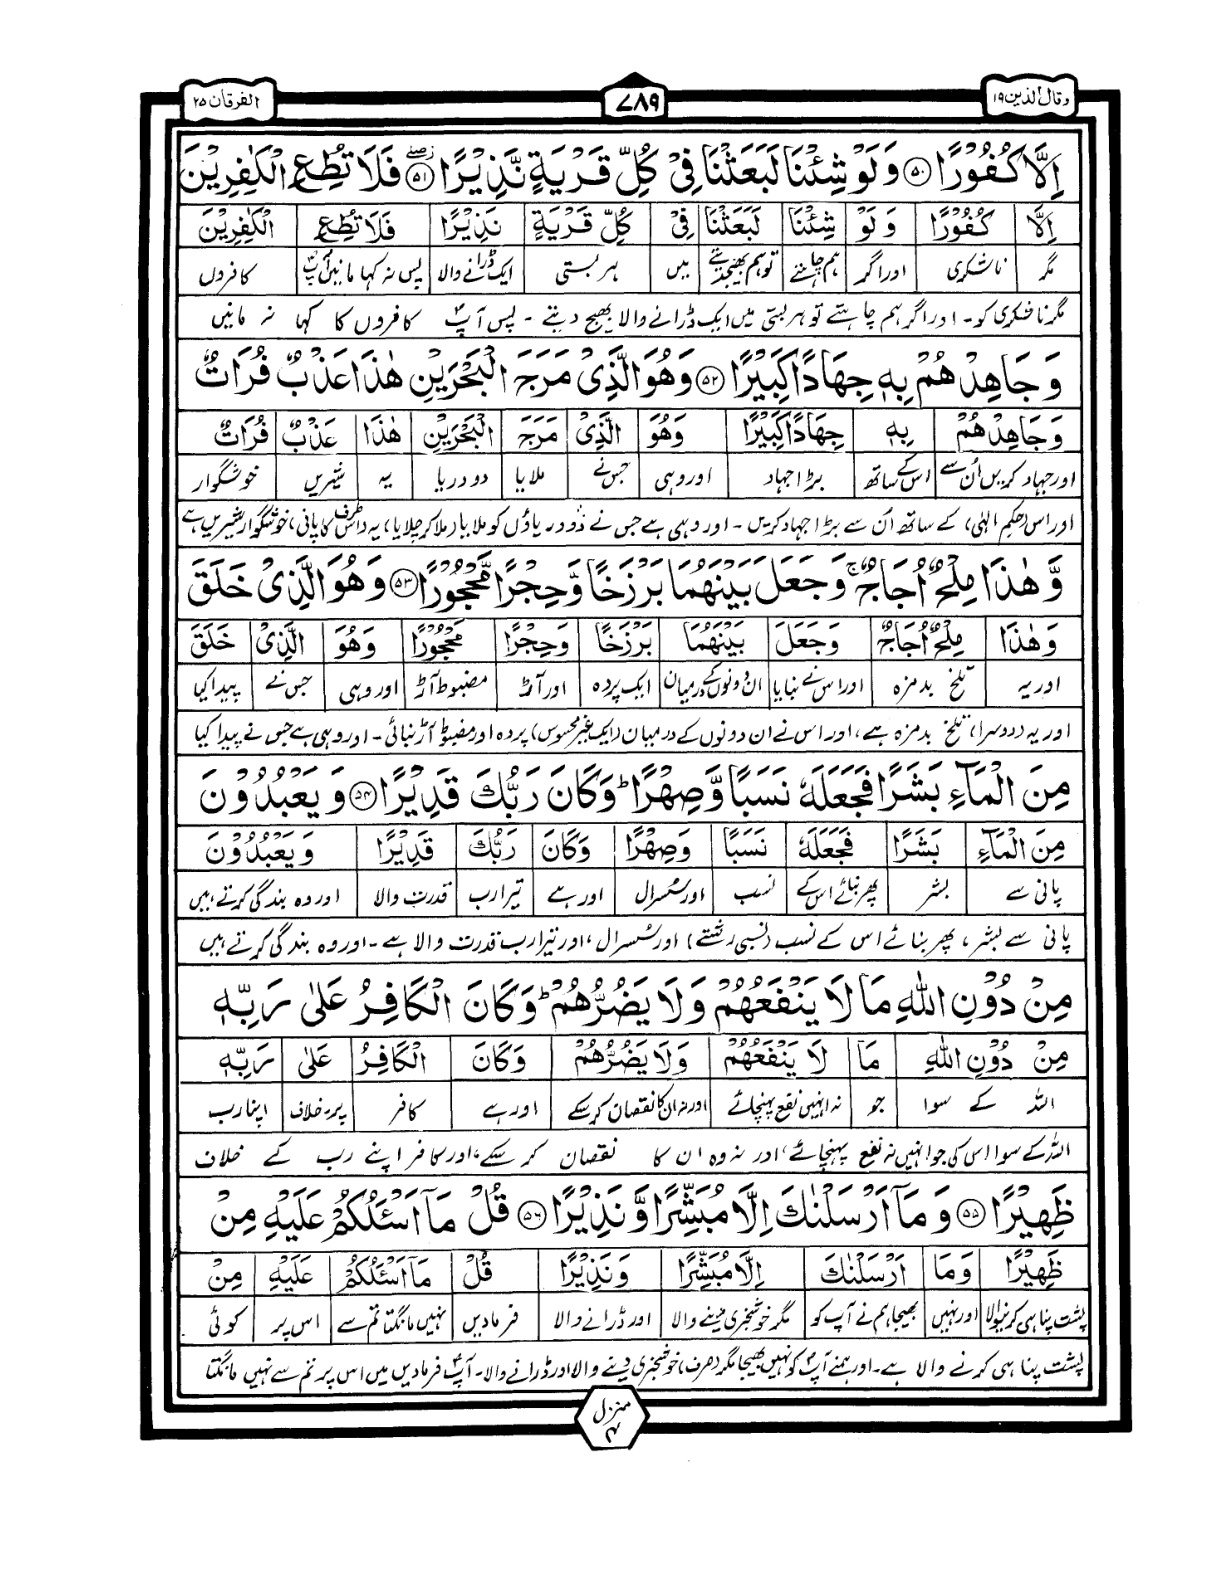 وقال الذین ۱۹
۷۸۹
الفرقان ۲۵
اِلَّا كُفُوْرًا ۵۰ وَلَوْ شِئْنَا لَبَعَثْنَا فِیْ كُلِّ قَرْیَةٍ نَّذِیْرًا ۵۱ فَلَا تُطِعِ الْكٰفِرِیْنَ
اِلَّا كُفُوْرًا وَلَوْ شِئْنَا لَبَعَثْنَا فِیْ كُلِّ قَرْیَةٍ نَذِیْرًا فَلَا تُطِعِ الْكٰفِرِیْنَ
مگر ناشکری اور اگر ہم چاہتے تو ہم بھیجدیتے میں ہر بستی ایک ڈرانے والا پس نہ کہا مانیں آپ کافروں
مگر ناشکری کو۔ اور اگر ہم چاہتے تو ہر بستی میں ایک ڈرانے والا بھیج دیتے ۔ پس آپ کافروں کا کہا نہ مانیں
وَجَاهِدْهُمْ بِهٖ جِهَادًا كَبِیْرًا ۵۲ وَهُوَ الَّذِیْ مَرَجَ الْبَحْرَیْنِ هٰذَا عَذْبٌ فُرَاتٌ
وَجَاهِدْهُمْ بِهٖ جِهَادًا كَبِیْرًا وَهُوَ الَّذِیْ مَرَجَ الْبَحْرَیْنِ هٰذَا عَذْبٌ فُرَاتٌ
اور جہاد کریں اُن سے اس کے ساتھ بڑا جہاد اور وہی جس نے ملایا دو دریا یہ شیریں خوشگوار
اور اس (حکم الٰہی) کے ساتھ اُن سے بڑا جہاد کریں ۔ اور وہی ہے جس نے دو دریاؤں کو ملایا (ملا کر چلایا) یہ (اس طرف کا پانی) خوشگوار شیریں ہے
وَّهٰذَا مِلْحٌ اُجَاجٌ ۚ وَجَعَلَ بَیْنَهُمَا بَرْزَخًا وَّحِجْرًا مَّحْجُوْرًا ۵۳ وَهُوَ الَّذِیْ خَلَقَ
وَهٰذَا مِلْحٌ اُجَاجٌ وَجَعَلَ بَیْنَهُمَا بَرْزَخًا وَحِجْرًا مَحْجُوْرًا وَهُوَ الَّذِیْ خَلَقَ
اور یہ تلخ بدمزہ اور اس نے بنایا ان دونوں کے درمیان ایک پردہ اور آڑ مضبوط آڑ اور وہی جس نے پیدا کیا
اور یہ (دوسرا) تلخ بدمزہ ہے، اور اس نے ان دونوں کے درمیان (ایک غیر محسوس) پردہ اور مضبوط آڑ بنائی ۔ اور وہی ہے جس نے پیدا کیا
مِنَ الْمَآءِ بَشَرًا فَجَعَلَهٗ نَسَبًا وَّصِهْرًا ؕ وَكَانَ رَبُّكَ قَدِیْرًا ۵۴ وَیَعْبُدُوْنَ
مِنَ الْمَآءِ بَشَرًا فَجَعَلَهٗ نَسَبًا وَصِهْرًا وَكَانَ رَبُّكَ قَدِیْرًا وَیَعْبُدُوْنَ
پانی سے بشر پھر بنائے اس کے نسب اور سسرال اور ہے تیرا رب قدرت والا اور وہ بندگی کرتے ہیں
پانی سے بشر، پھر بنائے اس کے نسب (نسبی رشتے) اور سسرال، اور تیرا رب قدرت والا ہے ۔ اور وہ بندگی کرتے ہیں
مِنْ دُوْنِ اللّٰهِ مَا لَا یَنْفَعُهُمْ وَلَا یَضُرُّهُمْ ؕ وَكَانَ الْكَافِرُ عَلٰی رَبِّهٖ
مِنْ دُوْنِ اللّٰهِ مَا لَا یَنْفَعُهُمْ وَلَا یَضُرُّهُمْ وَكَانَ الْكَافِرُ عَلٰی رَبِّهٖ
اللہ کے سوا جو نہ انہیں نفع پہنچائے اور نہ ان کا نقصان کر سکے اور ہے کافر پر۔ خلاف اپنا رب
اللہ کے سوا اس کی جو انہیں نہ نفع پہنچائے، اور نہ وہ ان کا نقصان کر سکے، اور کافر اپنے رب کے خلاف
ظَهِیْرًا ۵۵ وَمَاۤ اَرْسَلْنٰكَ اِلَّا مُبَشِّرًا وَّنَذِیْرًا ۵۶ قُلْ مَاۤ اَسْئَلُكُمْ عَلَیْهِ مِنْ
ظَهِیْرًا وَمَا اَرْسَلْنٰكَ اِلَّا مُبَشِّرًا وَنَذِیْرًا قُلْ مَاۤ اَسْئَلُكُمْ عَلَیْهِ مِنْ
پشت پناہی کرنیوالا اور نہیں بھیجا ہم نے آپ کو مگر خوشخبری دینے والا اور ڈرانے والا فرمادیں نہیں مانگتا تم سے اس پر کوئی
پشت پناہی کرنے والا ہے۔ اور ہمنے آپ کو نہیں بھیجا مگر (صرف) خوشخبری دینے والا اور ڈرانے والا۔ آپ فرمادیں میں اس پر تم سے نہیں مانگتا
منزل ۴